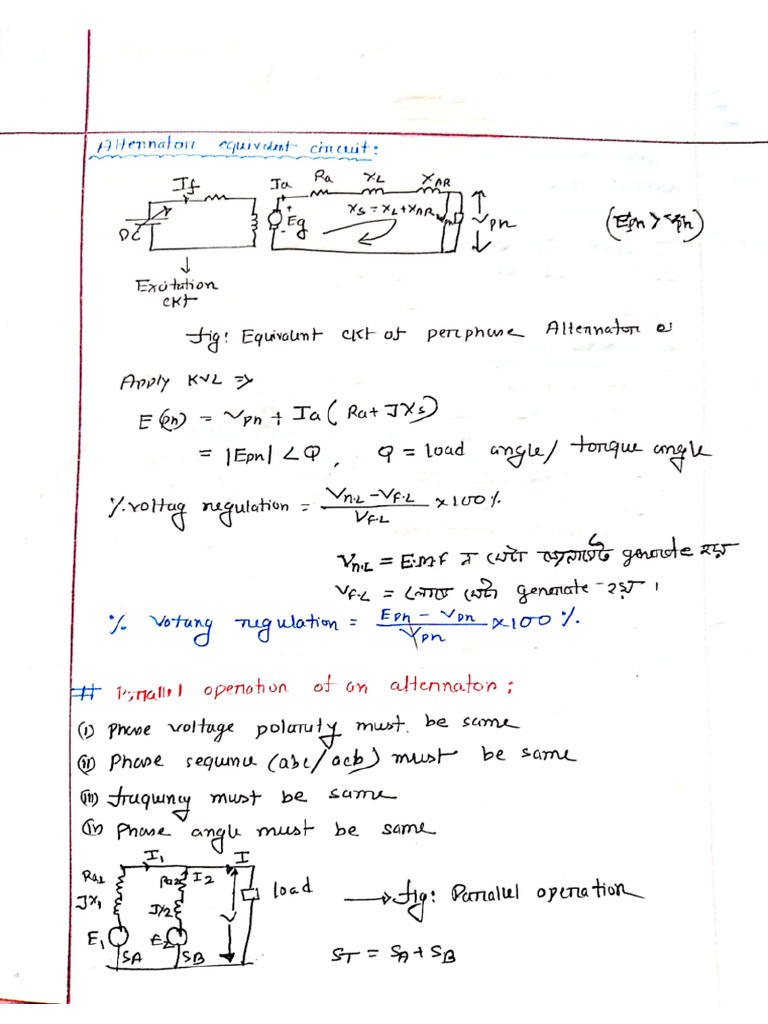 Alternator equivalent circuit:
If
Ia
Ra
XL
XAR
DC
Eg
Xs = XL + XAR
Vpn
(Epn > Vpn)
Excitation
CKT
fig: Equivalent ckt of per phase Alternator
Apply KVL ⇒
E(pn) = Vpn + Ia (Ra + JXs)
= |Epn| ∠φ, φ = load angle/ torque angle
% voltag regulation = (Vn.L - Vf.L) / Vf.L × 100%
Vn.L = E.m.f generate হয়
Vf.L = generate হয়।
% Votang regulation = (Epn - Vpn) / Vpn × 100%
# Parallel operation of an alternator:
(i) Phase voltage polarity must be same
(ii) Phase sequence (abc/acb) must be same
(iii) frequency must be same
(iv) Phase angle must be same
I1
I
Ra1
Ra2
I2
load
JX1
JX2
V
E1
E2
SA
SB
→ fig: Parallel operation
ST = SA + SB